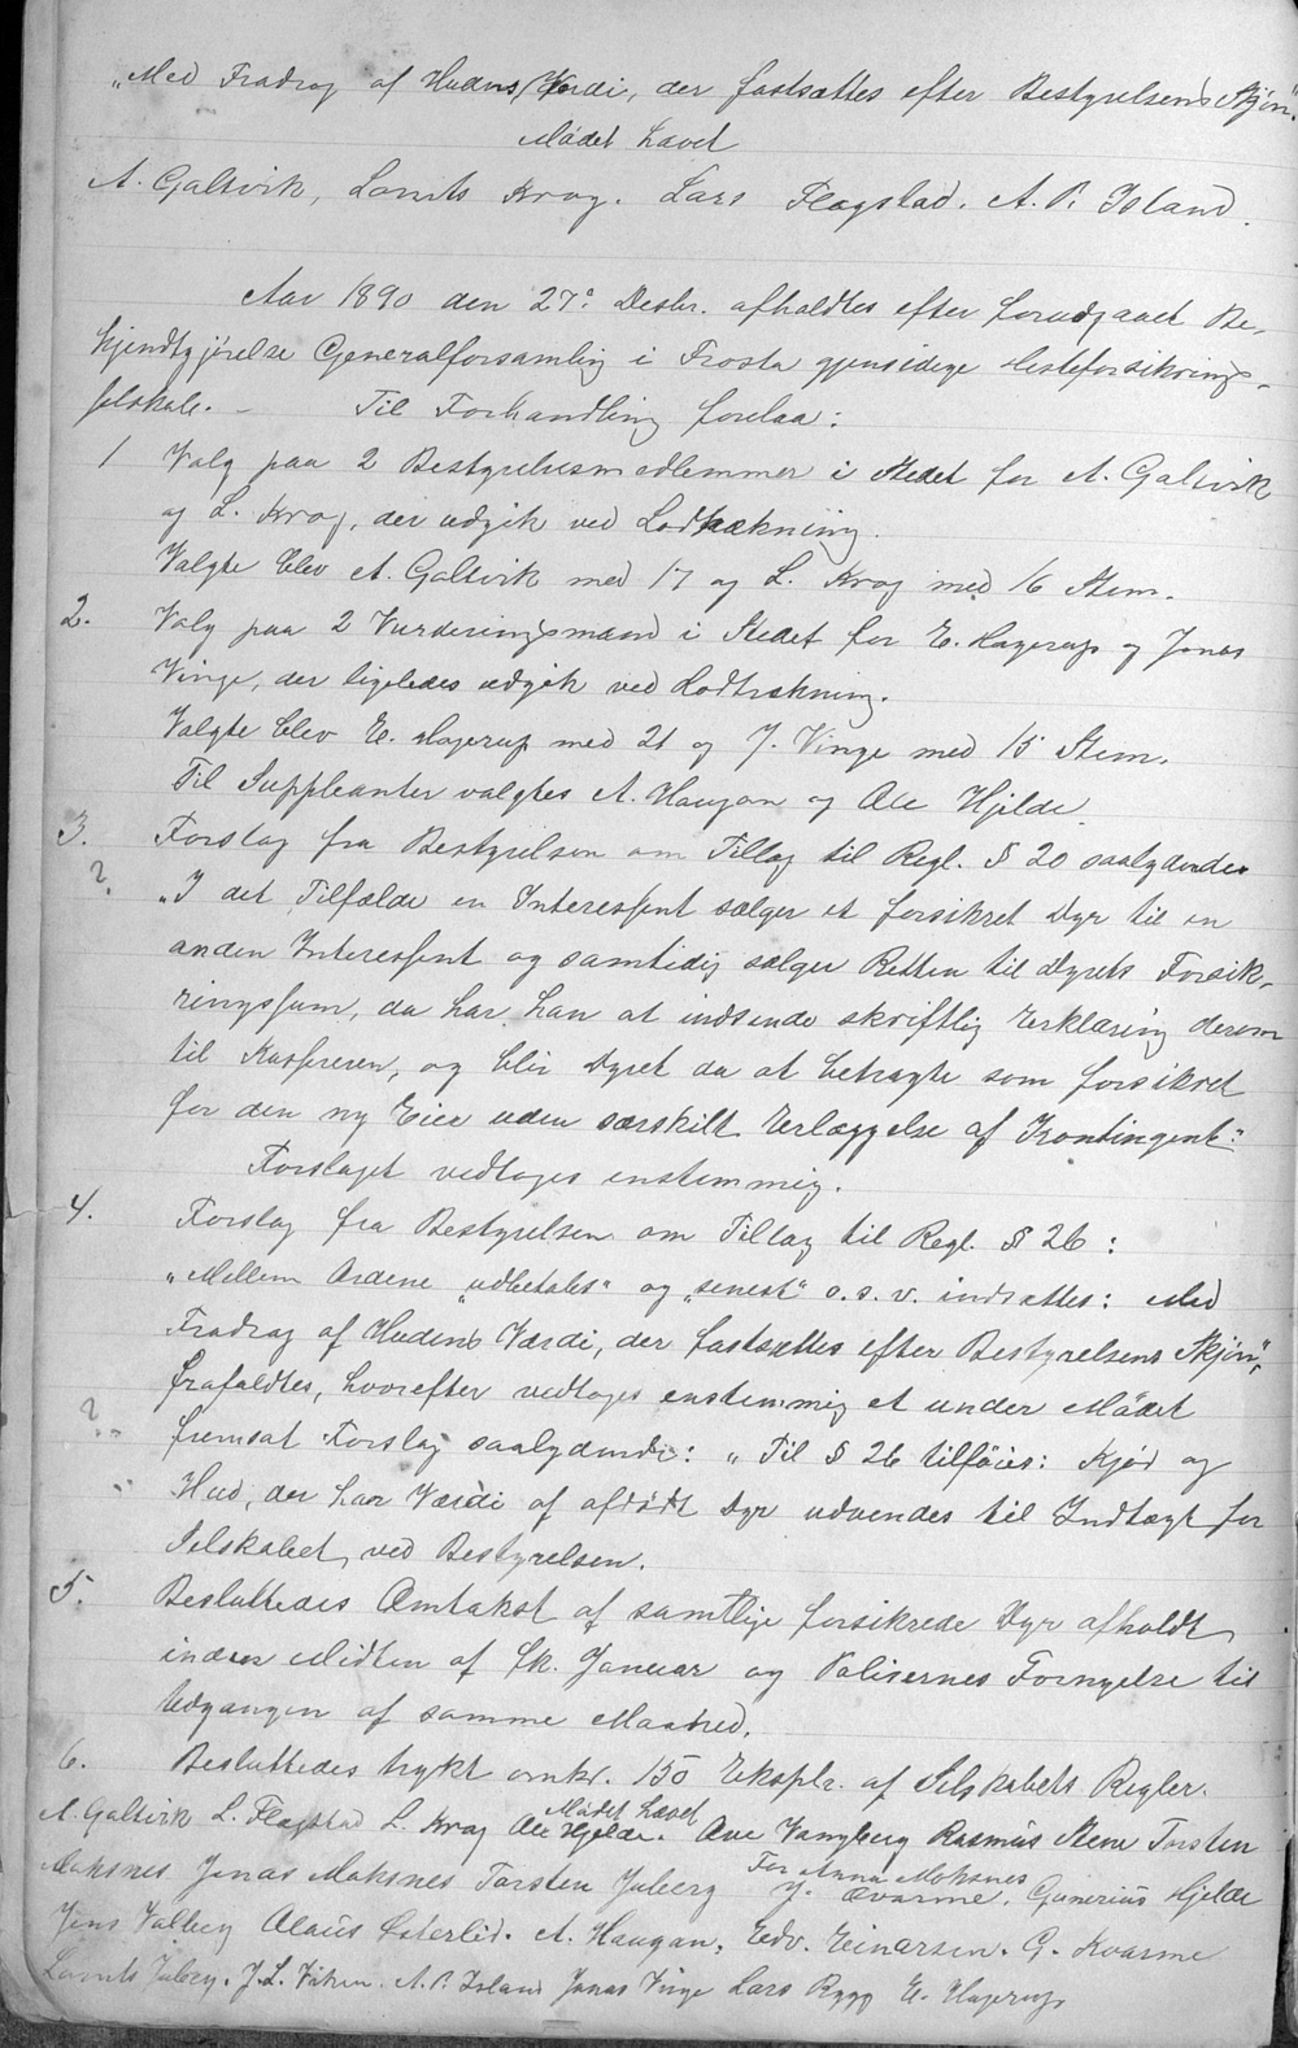 „Med Fradrag af Hudens Værdi, der fastsættes efter Bestyrelsens Skjøn.“
Mødet hævet
A. Galtvik, Lornts Krog. Lars Flagstad. A. P. Island.
Aar 1890 den 27de Desbr. afholdtes efter forudgaaet Be-
kjendtgjørelse Generalforsamling i Frosta gjensidige Hesteforsikrings-
selskab. – Til Forhandling forelaa:
1 Valg paa 2 Bestyrelsesmedlemmer i Stedet for A. Galtvik
og L. Krog, der udgik ved Lodtrækning.
Valgte blev A. Galtvik med 17 og L. Krog med 16 Stem.
2. Valg paa 2 Vurderingsmænd i Stedet for E. Hagerup og Jonas
Vinge, der ligeledes udgik ved Lodtrækning.
Valgte blev E. Hagerup med 21 og J. Vinge med 15 Stem.
Til Suppleanter valgtes A. Haugan og Ole Hjelde.
3. Forslag fra Bestyrelsen om Tillæg til Regl. § 20 saalydende
? „I det Tilfælde en Interessent sælger et forsikret Dyr til en
anden Interessent og samtidig sælger Retten til Dyrets Forsik-
ringssum, da har han at indsende skriftlig Erklæring derom
til Kassereren, og blir Dyret da at betragte som forsikret
for den ny Eier uden særskilt Erlæggelse af Kontingent.“
Forslaget vedtoges enstemmig.
4. Forslag fra Bestyrelsen om Tillæg til Regl. § 26:
„Mellem Ordene „udbetales“ og „senest“ o. s. v. indsættes: Med
Fradrag af Hudens Værdi, der fastsættes efter Bestyrelsens Skjøn“,
frafaldtes, hvorefter vedtoges enstemmig et under Mødet
? fremsat Forslag saalydende: „Til § 26 tilføies: Kjød og
Hud, der har Værdi af afdødt Dyr udvendes til Indtægt for
Selskabet, ved Bestyrelsen.
5. Besluttedes Omtakst af samtlige forsikrede Dyr afholdt
inden Midten af fk. Januar og Polisernes Fornyelse til
Udgangen af samme Maaned.
6. Besluttedes trykt omkr. 150 Eksplr. af Selskabets Regler.
Mødet hævet
A. Galtvik L. Flagstad L. Krog Ole Hjelde. Ove Vangberg Rasmus Stene Torsten
Moksnes Jonas Moksnes Torsten Juberg For Anna Moksnes J. Kvarme. Gunerius Hjelde
Jens Valberg Olaus Østerlid. A. Haugan. Edv. Einarsen. G. Kvarme
Lornts Juberg. J. L. Viken. A. P. Island Jonas Vinge Lars Rygg E. Hagerup